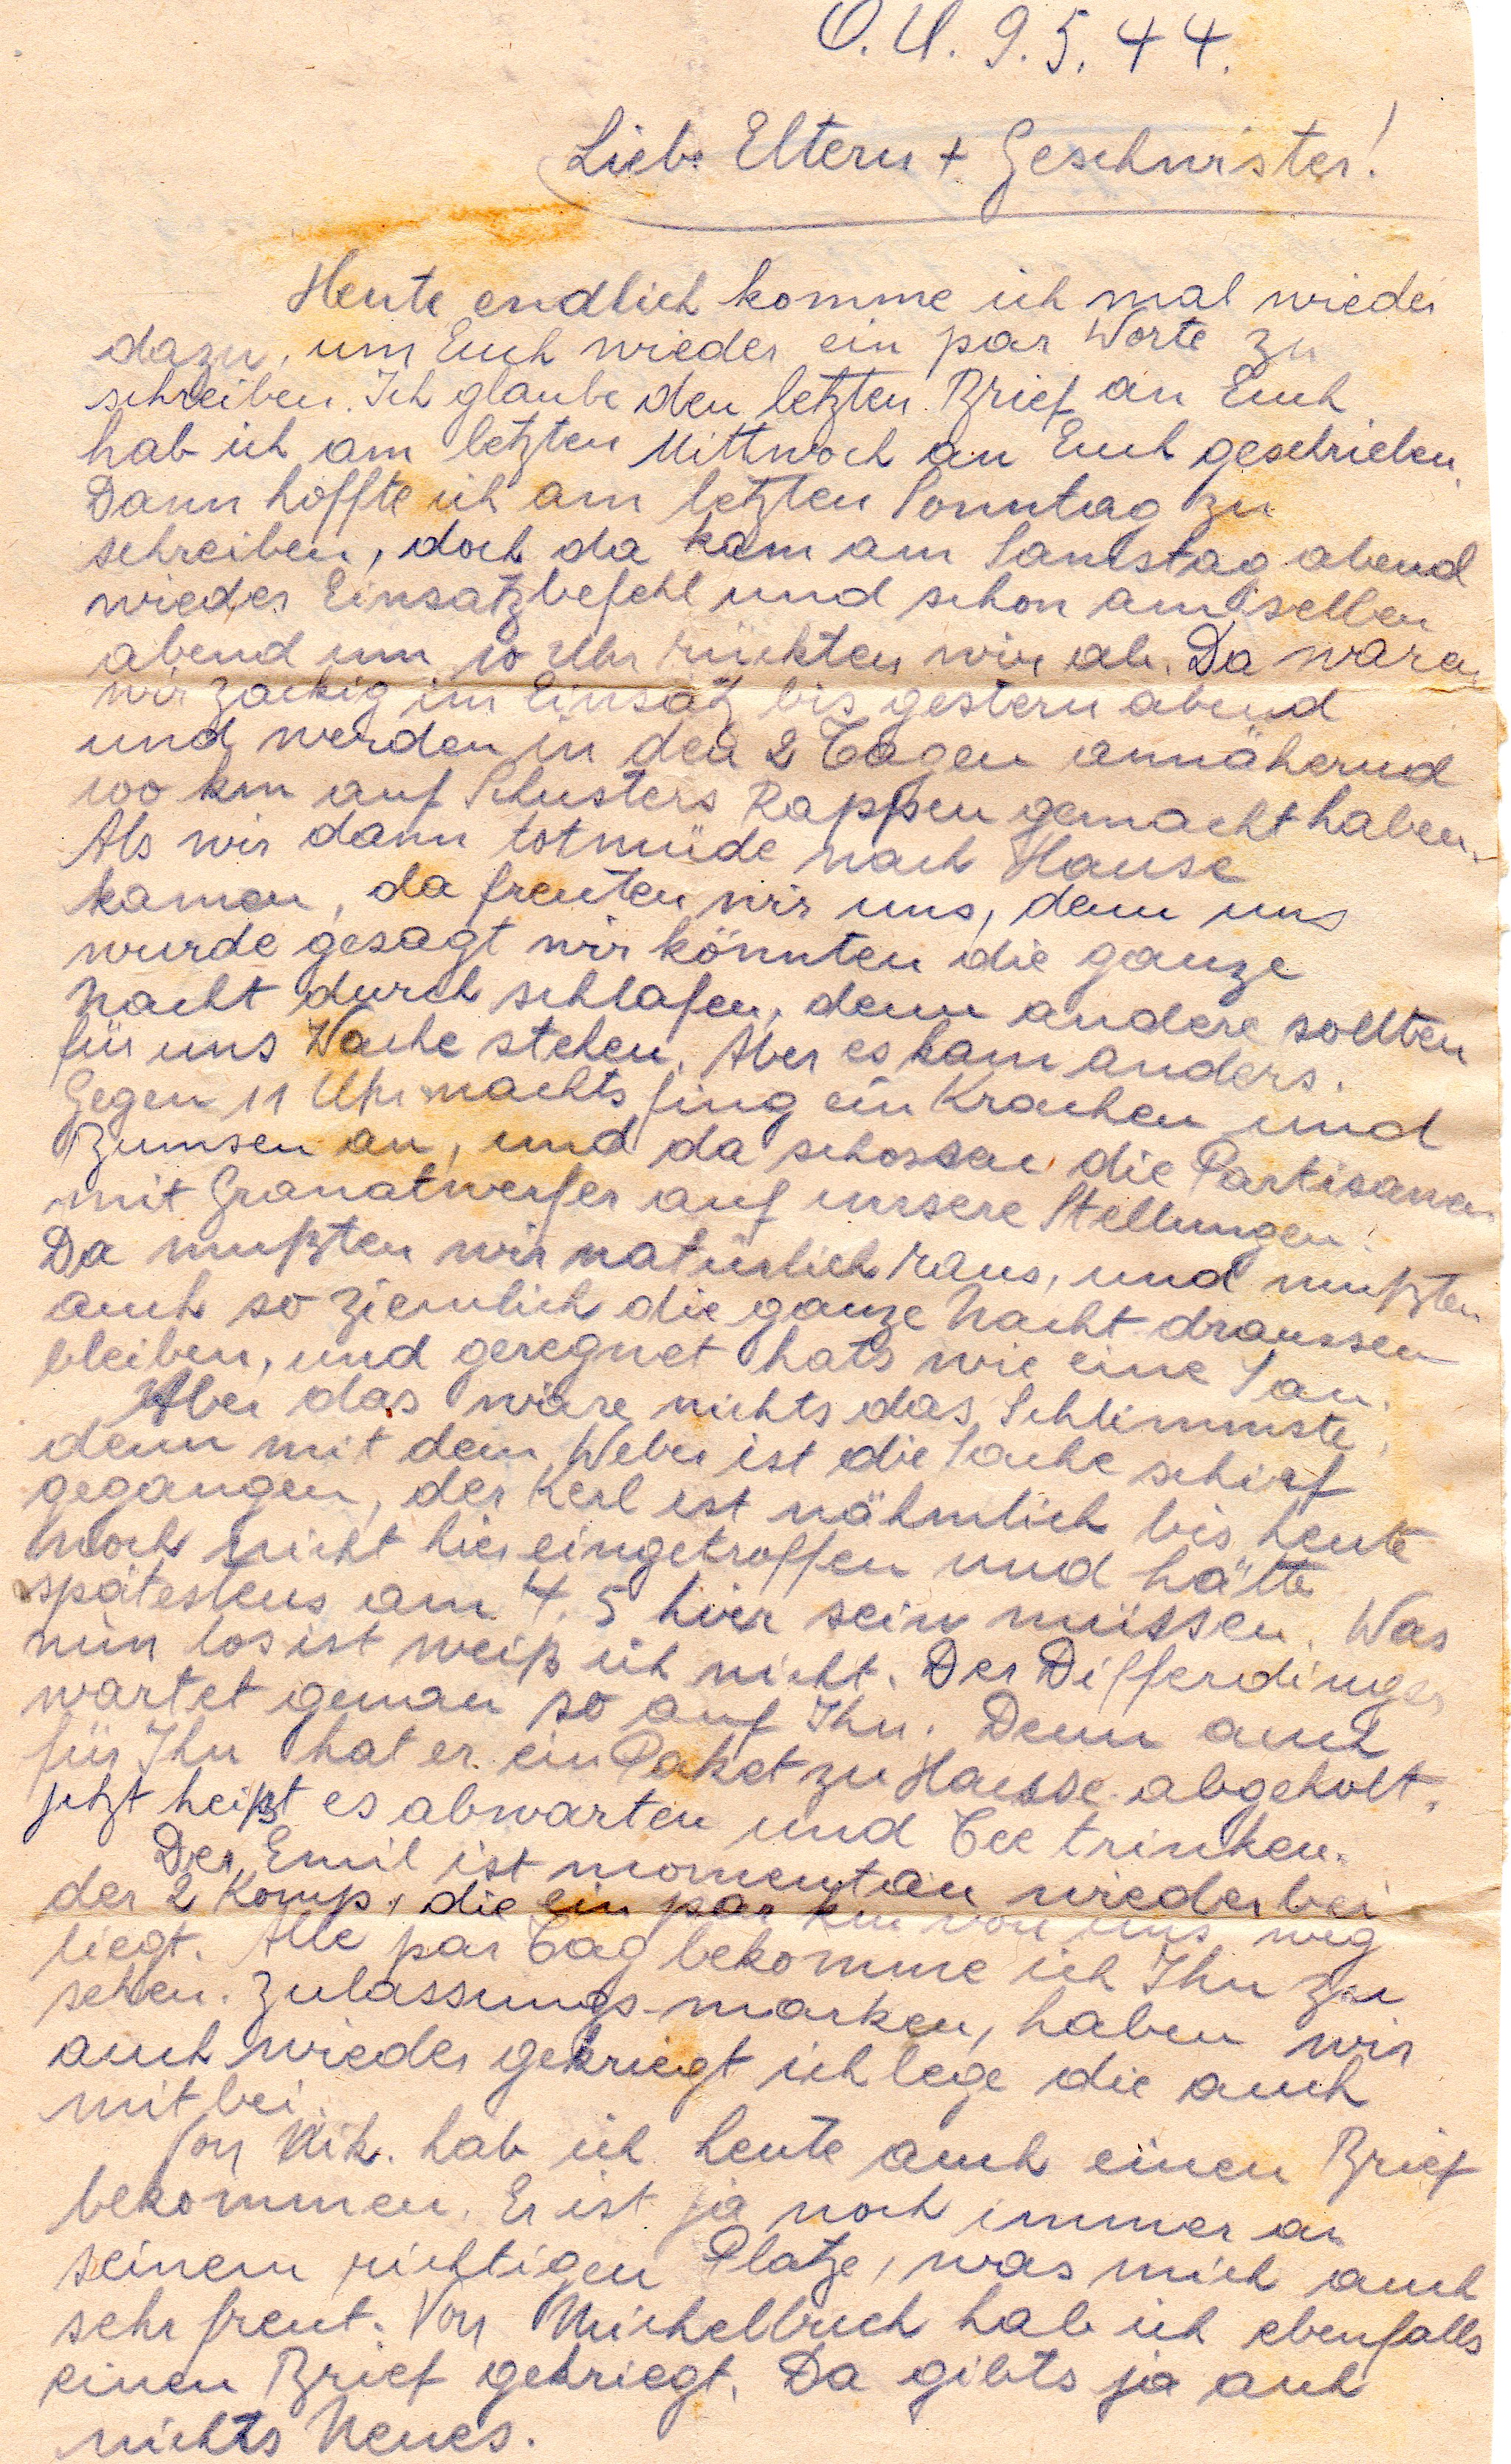 O.U. 9.5.44.
Liebe Eltern + Geschwister!
Heute endlich komme ich mal wieder
dazu, um Euch wieder ein par Worte zu
schreiben. Ich glaube den letzten Brief an Euch
hab ich am letzten Mittwoch an Euch geschrieben.
Dann hoffte ich am letzten Sonntag zu
schreiben, doch da kam am Samstag abend
wieder Einsatzbefehl und schon am selben
abend um 10 Uhr rückten wir ab. Da waren
wir zackig im Einsatz bis gestern abend
und werden in den 2 Tagen annähernd
100 km auf Schusters Rappen gemacht haben.
Als wir dann totmüde nach Hause
kamen, da freuten wir uns, denn uns
wurde gesagt wir könnten die ganze
Nacht durch schlafen, denn andere sollten
für uns Wache stehen. Aber es kam anders.
Gegen 11 Uhr nachts fing ein Krachen und
Bumsen an, und da schossen die Partisanen
mit Granatwerfer auf unsere Stellungen.
Da mußten wir natürlich raus, und mußten
auch so ziemlich die ganze Nacht draussen
bleiben, und geregnet hats wie eine Sau.
Aber das wäre nichts das Schlimmste,
denn mit dem Weber ist die Sache schief
gegangen, der Kerl ist nähmlich bis heute
noch nicht hier eingetroffen und hätte
spätestens am 4.5 hier sein müssen. Was
nun los ist weiß ich nicht. Der Differdinger
wartet genau so auf Ihn. Denn auch
für Ihn hat er ein Paket zu Hause abgeholt.
jetzt heißt es abwarten und Tee trinken.
Der Emil ist momentan wieder bei
der 2 Komp. die ein par km von uns weg
liegt. Alle par Tag bekomme ich Ihn zu
sehen. Zulassungs-marken, haben wir
auch wieder gekriegt ich lege die auch
mit bei.
Von Nik. hab ich heute auch einen Brief
bekommen. Er ist ja noch immer an
seinem richtigen Platze, was mich auch
sehr freut. Von Michelbuch hab ich ebenfalls
einen Brief gekriegt. Da gibts ja auch
nichts Neues.